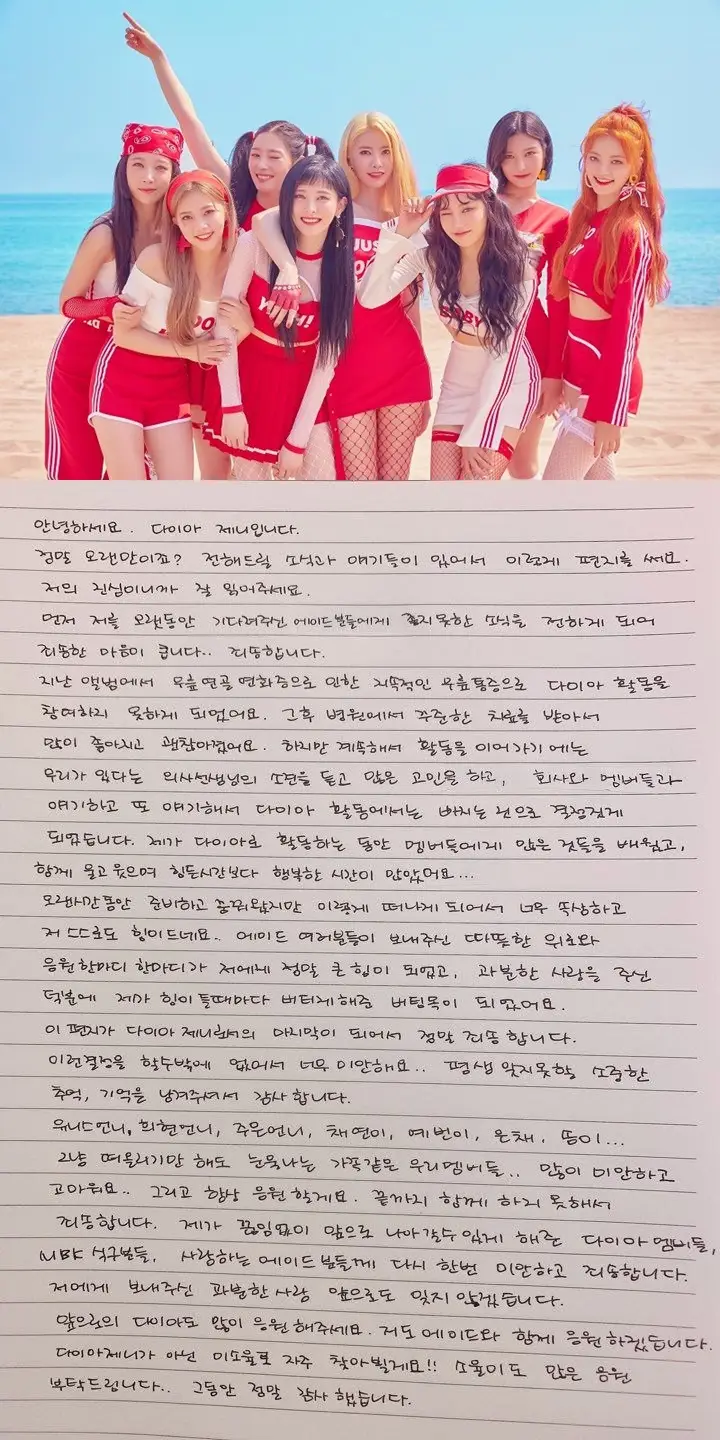 JUS
YEAH!
안녕하세요. 다이아 제니입니다.
정말 오랜만이죠? 전해드릴 소식과 얘기들이 있어서 이렇게 편지를 써요.
저의 진심이니까 잘 읽어주세요.
먼저 저를 오랫동안 기다려주신 에이드분들에게 좋지못한 소식을 전하게 되어
죄송한 마음이 큽니다.. 죄송합니다.
지난 앨범에서 무릎연골연화증으로 인한 지속적인 무릎통증으로 다이아 활동을
참여하지 못하게 되었어요. 그후 병원에서 꾸준한 치료를 받아서
많이 좋아지고 괜찮아졌어요. 하지만 계속해서 활동을 이어가기에는
무리가 있다는 의사선생님의 소견을 듣고 많은 고민을 하고, 회사와 멤버들과
얘기하고 또 얘기해서 다이아 활동에서는 빠지는 것으로 결정짓게
되었습니다. 제가 다이아로 활동하는 동안 멤버들에게 많은 것들을 배웠고,
함께 울고 웃으며 힘든시간보다 행복한 시간이 많았어요...
오랜시간동안 준비하고 꿈꿔왔지만 이렇게 떠나게 되어서 너무 속상하고
저 스스로도 힘이드네요.. 에이드 여러분들이 보내주신 따뜻한 위로와
응원 한마디 한마디가 저에게 정말 큰 힘이 되었고, 과분한 사랑을 주신
덕분에 제가 힘이 들때마다 버티게 해준 버팀목이 되었어요.
이 편지가 다이아 제니로서의 마지막이 되어서 정말 죄송합니다.
이런결정을 할수밖에 없어서 너무 미안해요.. 평생 잊지못할 소중한
추억, 기억을 남겨주셔서 감사합니다.
유니스언니, 희현언니, 주은언니, 채연이, 예빈이, 은채, 솜이...
그냥 떠올리기만 해도 눈물나는 가족같은 우리멤버들.. 많이 미안하고
고마워요.. 그리고 항상 응원할게요. 끝까지 함께 하지 못해서
죄송합니다. 제가 끊임없이 앞으로 나아갈수있게 해준 다이아 멤버들,
MBK 식구분들, 사랑하는 에이드분들께 다시 한번 미안하고 죄송합니다.
저에게 보내주신 과분한 사랑 앞으로도 잊지 않겠습니다.
앞으로의 다이아도 많이 응원해주세요. 저도 에이드와 함께 응원하겠습니다.
다이아제니가 아닌 이소율로 자주 찾아뵐게요!! 소율이도 많은 응원
부탁드립니다.. 그동안 정말 감사했습니다.